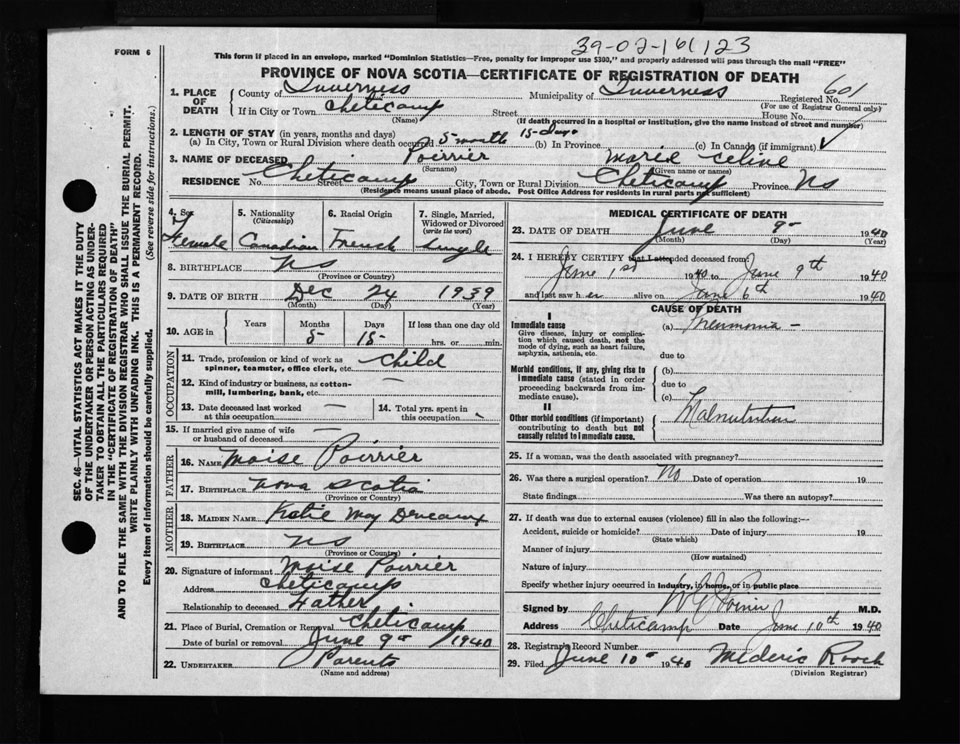 39-02-161123
FORM 6
This form if placed in an envelope, marked "Dominion Statistics—Free, penalty for improper use $300," and properly addressed will pass through the mail "FREE"
PROVINCE OF NOVA SCOTIA—CERTIFICATE OF REGISTRATION OF DEATH
1. PLACE OF DEATH County of Inverness Municipality of Inverness Registered No. 601
(For use of Registrar General only)
If in City or Town Cheticamp Street House No.
(Name) (If death occurred in a hospital or institution, give the name instead of street and number)
2. LENGTH OF STAY (in years, months and days)
(a) In City, Town or Rural Division where death occurred 5 month 15 days (b) In Province (c) In Canada (if immigrant)
3. NAME OF DECEASED Poirrier Marie Celine
(Surname) (Given name or names)
RESIDENCE No. Street Cheticamp City, Town or Rural Division Cheticamp Province NS
(Residence means usual place of abode. Post Office Address for residents in rural parts not sufficient)
4. Sex 5. Nationality 6. Racial Origin 7. Single, Married,
(Citizenship) Widowed or Divorced
(write the word)
Female Canadian French Single
8. BIRTHPLACE NS
(Province or Country)
9. DATE OF BIRTH Dec 24 1939
(Month) (Day) (Year)
10. AGE in Years Months Days If less than one day old
5 15 hrs. or min.
OCCUPATION
11. Trade, profession or kind of work as spinner, teamster, office clerk, etc. Child
12. Kind of industry or business, as cotton-mill, lumbering, bank, etc. —
13. Date deceased last worked at this occupation — 14. Total yrs. spent in this occupation -
15. If married give name of wife or husband of deceased —
FATHER
16. NAME Moise Poirrier
17. BIRTHPLACE Nova Scotia
(Province or Country)
MOTHER
18. MAIDEN NAME Katie May Deveaux
19. BIRTHPLACE NS
(Province or Country)
20. Signature of informant Moise Poirrier
Address Cheticamp
Relationship to deceased Father
21. Place of Burial, Cremation or Removal Cheticamp
Date of burial or removal June 9 1940
22. UNDERTAKER Parents
(Name and address)
MEDICAL CERTIFICATE OF DEATH
23. DATE OF DEATH June 8 1940
(Month) (Day) (Year)
24. I HEREBY CERTIFY that I attended deceased from
June 1st 1940 to June 9th 1940
and last saw her alive on June 6th 1940
CAUSE OF DEATH
I
Immediate cause (a) Pneumonia —
Give disease, injury or complication which caused death, not the mode of dying, such as heart failure, asphyxia, asthenia, etc.
due to
Morbid conditions, if any, giving rise to immediate cause (stated in order proceeding backwards from immediate cause).
(b)
due to
(c)
II
Other morbid conditions (if important) contributing to death but not causally related to immediate cause. Malnutrition
25. If a woman, was the death associated with pregnancy?
26. Was there a surgical operation? No Date of operation 19
State findings Was there an autopsy?
27. If death was due to external causes (violence) fill in also the following:—
Accident, suicide or homicide? Date of injury 19
(State which)
Manner of injury
(How sustained)
Nature of injury
Specify whether injury occurred in industry, in home, or in public place
Signed by M.D.
Address Cheticamp Date June 10th 1940
28. Registrar's Record Number
29. Filed June 10 1940 Mederic Roach
(Division Registrar)
SEC. 46—VITAL STATISTICS ACT MAKES IT THE DUTY
OF THE UNDERTAKER OR PERSON ACTING AS UNDER-
TAKER TO OBTAIN ALL THE PARTICULARS REQUIRED
IN THE "CERTIFICATE OF REGISTRATION OF DEATH"
AND TO FILE THE SAME WITH THE DIVISION REGISTRAR WHO SHALL ISSUE THE BURIAL PERMIT.
WRITE PLAINLY WITH UNFADING INK. THIS IS A PERMANENT RECORD.
Every item of information should be carefully supplied. (See reverse side for instructions.)